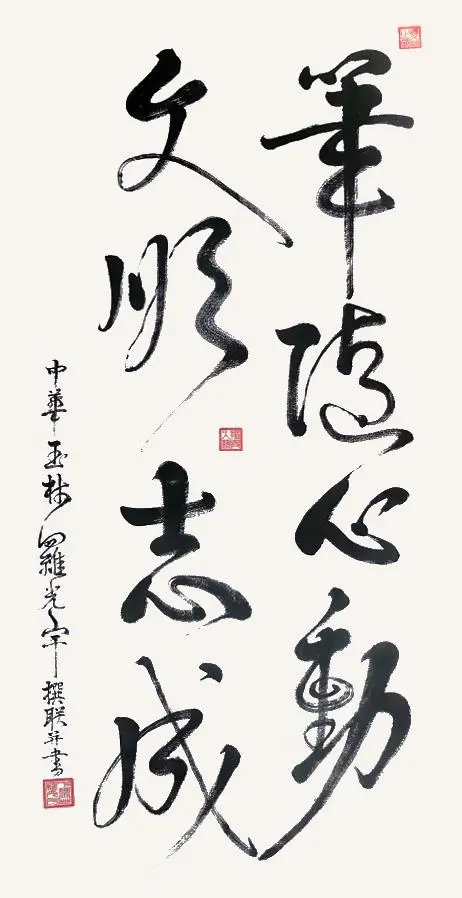 筆隨心動
文順志成
中華玉林羅光宇撰联并書